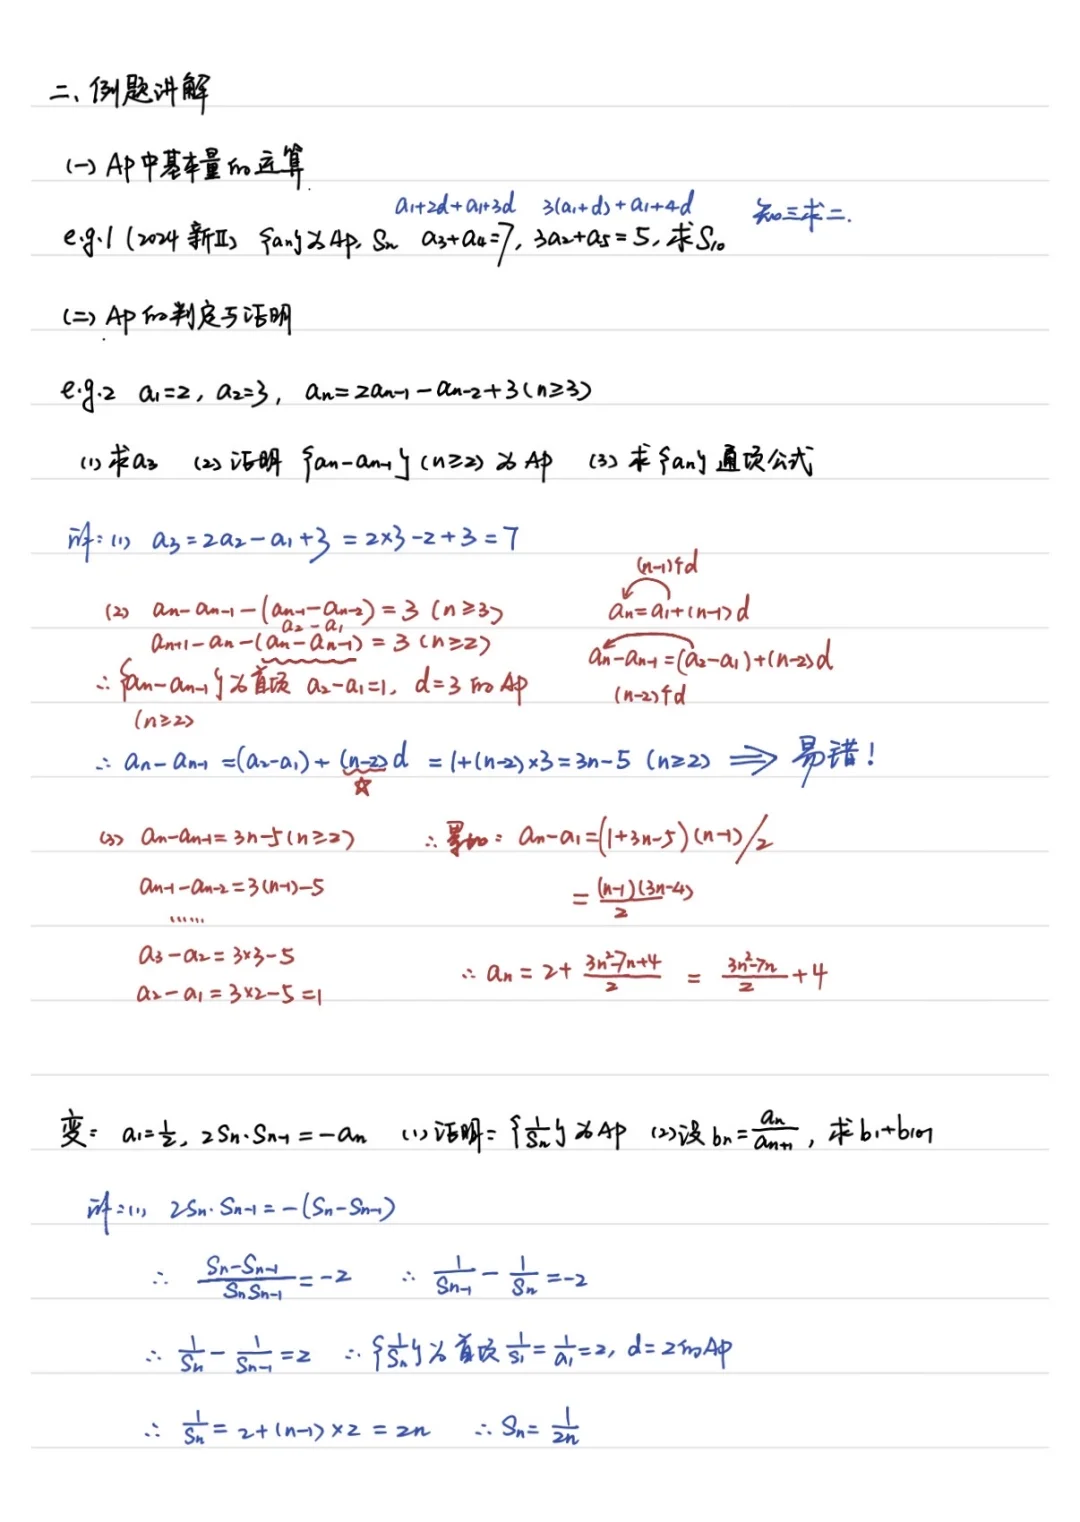 二、例题讲解
(一) AP中基本量的运算
a₁+2d+a₁+3d 3(a₁+d)+a₁+4d 知三求二.
e.g.1 (2024 新Ⅱ) {aₙ}为AP, Sₙ a₃+a₄=7, 3a₂+a₅=5, 求S₁₀
(二) AP的判定与证明
e.g.2 a₁=2, a₂=3, aₙ=2aₙ₋₁-aₙ₋₂+3(n≥3)
(1) 求a₃ (2) 证明 {aₙ-aₙ₋₁}(n≥2) 为AP (3) 求{aₙ}通项公式
解:(1) a₃=2a₂-a₁+3=2×3-2+3=7
(n-1)个d
(2) aₙ-aₙ₋₁-(aₙ₋₁-aₙ₋₂)=3 (n≥3) aₙ=a₁+(n-1)d
a₂-a₁
aₙ₊₁-aₙ-(aₙ-aₙ₋₁)=3 (n≥2) aₙ-aₙ₋₁=(a₂-a₁)+(n-2)d
∴{aₙ-aₙ₋₁}为首项 a₂-a₁=1, d=3的AP (n-2)个d
(n≥2)
∴ aₙ-aₙ₋₁=(a₂-a₁)+(n-2)d =1+(n-2)×3=3n-5 (n≥2) ⟹ 易错!
☆
(3) aₙ-aₙ₋₁=3n-5(n≥2) ∴累加: aₙ-a₁=(1+3n-5)(n-1)/2
aₙ₋₁-aₙ₋₂=3(n-1)-5 =(n-1)(3n-4)/2
……
a₃-a₂=3×3-5 ∴ aₙ=2+(3n²-7n+4)/2 = (3n²-7n)/2+4
a₂-a₁=3×2-5=1
变: a₁=1/2, 2Sₙ·Sₙ₋₁=-aₙ (1)证明:{1/Sₙ}为AP (2)设bₙ=aₙ/aₙ₊₁, 求b₁+b₁₀₁
解:(1) 2Sₙ·Sₙ₋₁=-(Sₙ-Sₙ₋₁)
∴ (Sₙ-Sₙ₋₁)/(SₙSₙ₋₁)=-2 ∴ 1/Sₙ₋₁-1/Sₙ=-2
∴ 1/Sₙ-1/Sₙ₋₁=2 ∴{1/Sₙ}为首项1/S₁=1/a₁=2, d=2的AP
∴ 1/Sₙ=2+(n-1)×2=2n ∴ Sₙ=1/2n